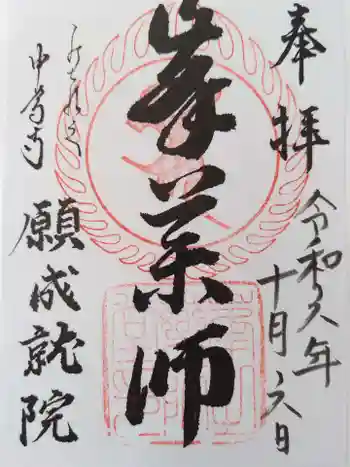 奉拝
令和六年
十月六日
峯薬師
みちのく
中尊寺
願成就院